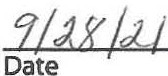 9/28/21
Date